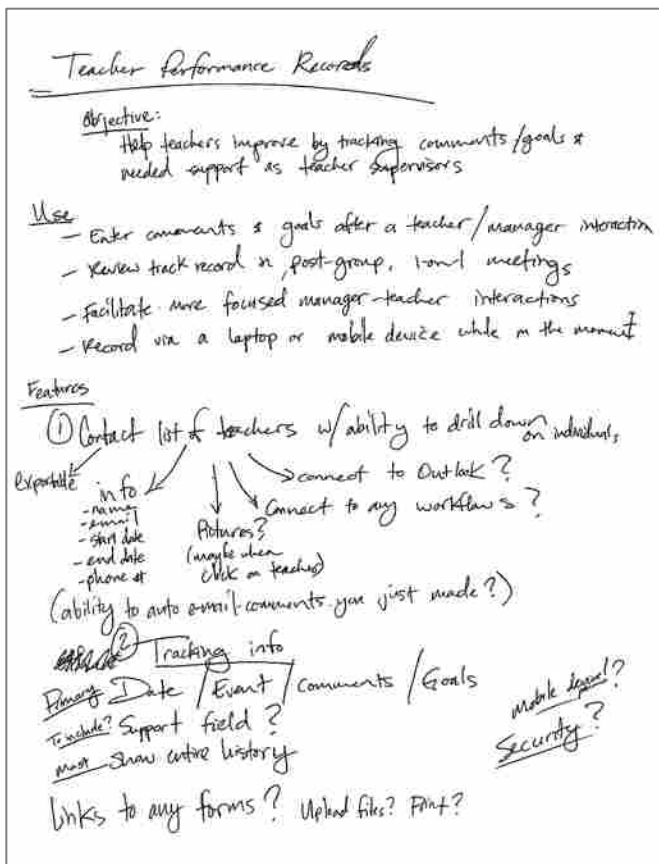 Teacher Performance Records
Objective:
Help teachers improve by tracking comments/goals &
needed support as teacher supervisors
Use
- Enter comments & goals after a teacher/manager interaction
- Review track record in, post-group, 1-on-1 meetings
- Facilitate more focused manager-teacher interactions
- Record via a laptop or mobile device while in the moment
Features
① Contact list of teachers w/ability to drill down on individuals
exportable
connect to Outlook?
info
Connect to any workflows?
- name
- email
- start date
- end date
- phone #
Pictures?
(maybe when
click on teachers)
(ability to auto email comments you just made?)
② Tracking info
Primary Date / Event / Comments / Goals
To include? Support field?
must Show entire history
mobile
Security?
Links to any forms? Upload files? Print?